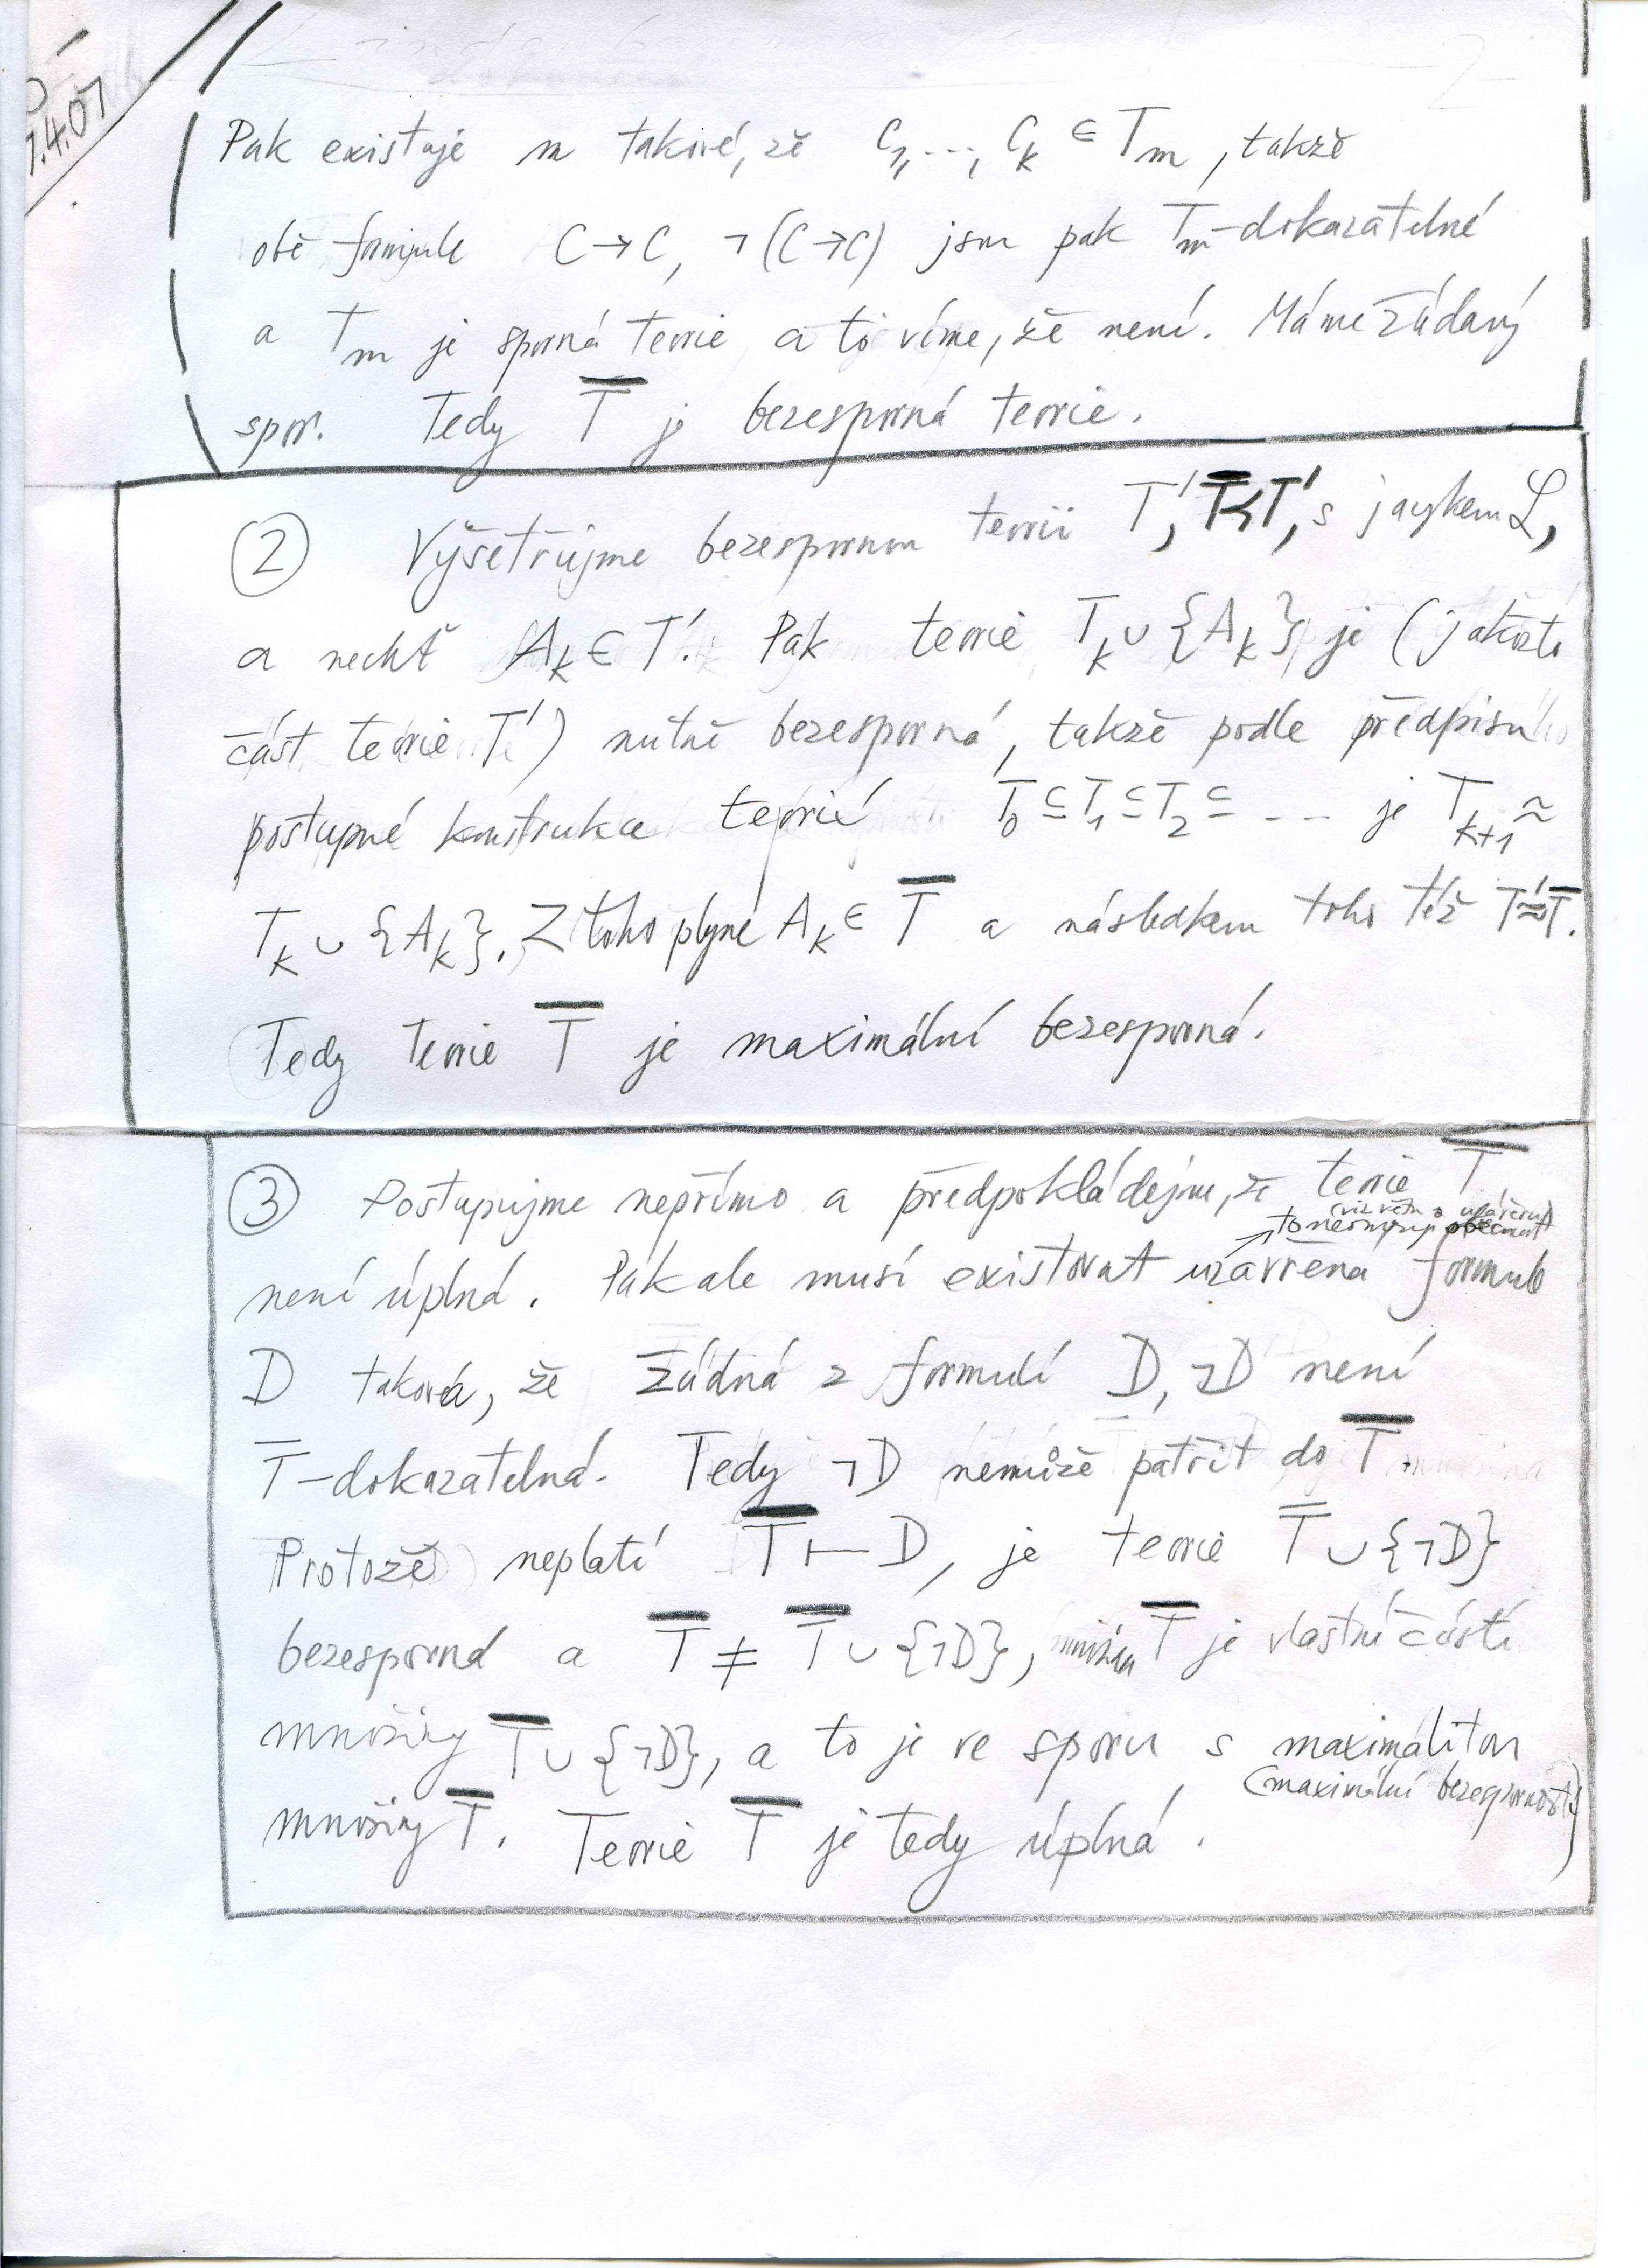 7.4.07
Pak existuje m takové, že C₁, ..., Cₖ ∈ Tₘ, takže
obě formule C→C, ¬(C→C) jsou pak Tₘ-dokazatelné
a Tₘ je sporná teorie a to víme, že není. Máme žádaný
spor. Tedy T̅ je bezesporná teorie.
② Vyšetřujme bezespornou teorii T', T̅<T', s jazykem ℒ,
a nechť Aₖ ∈ T'. Pak teorie Tₖ ∪ {Aₖ} je (jakožto
část teorie T') nutně bezesporná, takže podle předpisu
postupné konstrukce teorií T₀ ⊆ T₁ ⊆ T₂ ⊆ --- je Tₖ₊₁ ≈
Tₖ ∪ {Aₖ}. Z toho plyne Aₖ ∈ T̅ a následkem toho též T'≈T̅.
Tedy teorie T̅ je maximální bezesporná.
③ Postupujme nepřímo a předpokládejme, že teorie T̅
(viz větu o uzávěru)
to neomezuje obecnost
není úplná. Pak ale musí existovat uzavřená formule
D taková, že žádná z formulí D, ¬D není
T̅-dokazatelná. Tedy ¬D nemůže patřit do T̅.
Protože neplatí T̅ ⊢ D, je teorie T̅ ∪ {¬D}
bezesporná a T̅ ≠ T̅ ∪ {¬D}, množina T̅ je vlastní částí
množiny T̅ ∪ {¬D}, a to je ve sporu s maximalitou
(maximální bezesporností)
množiny T̅. Teorie T̅ je tedy úplná.